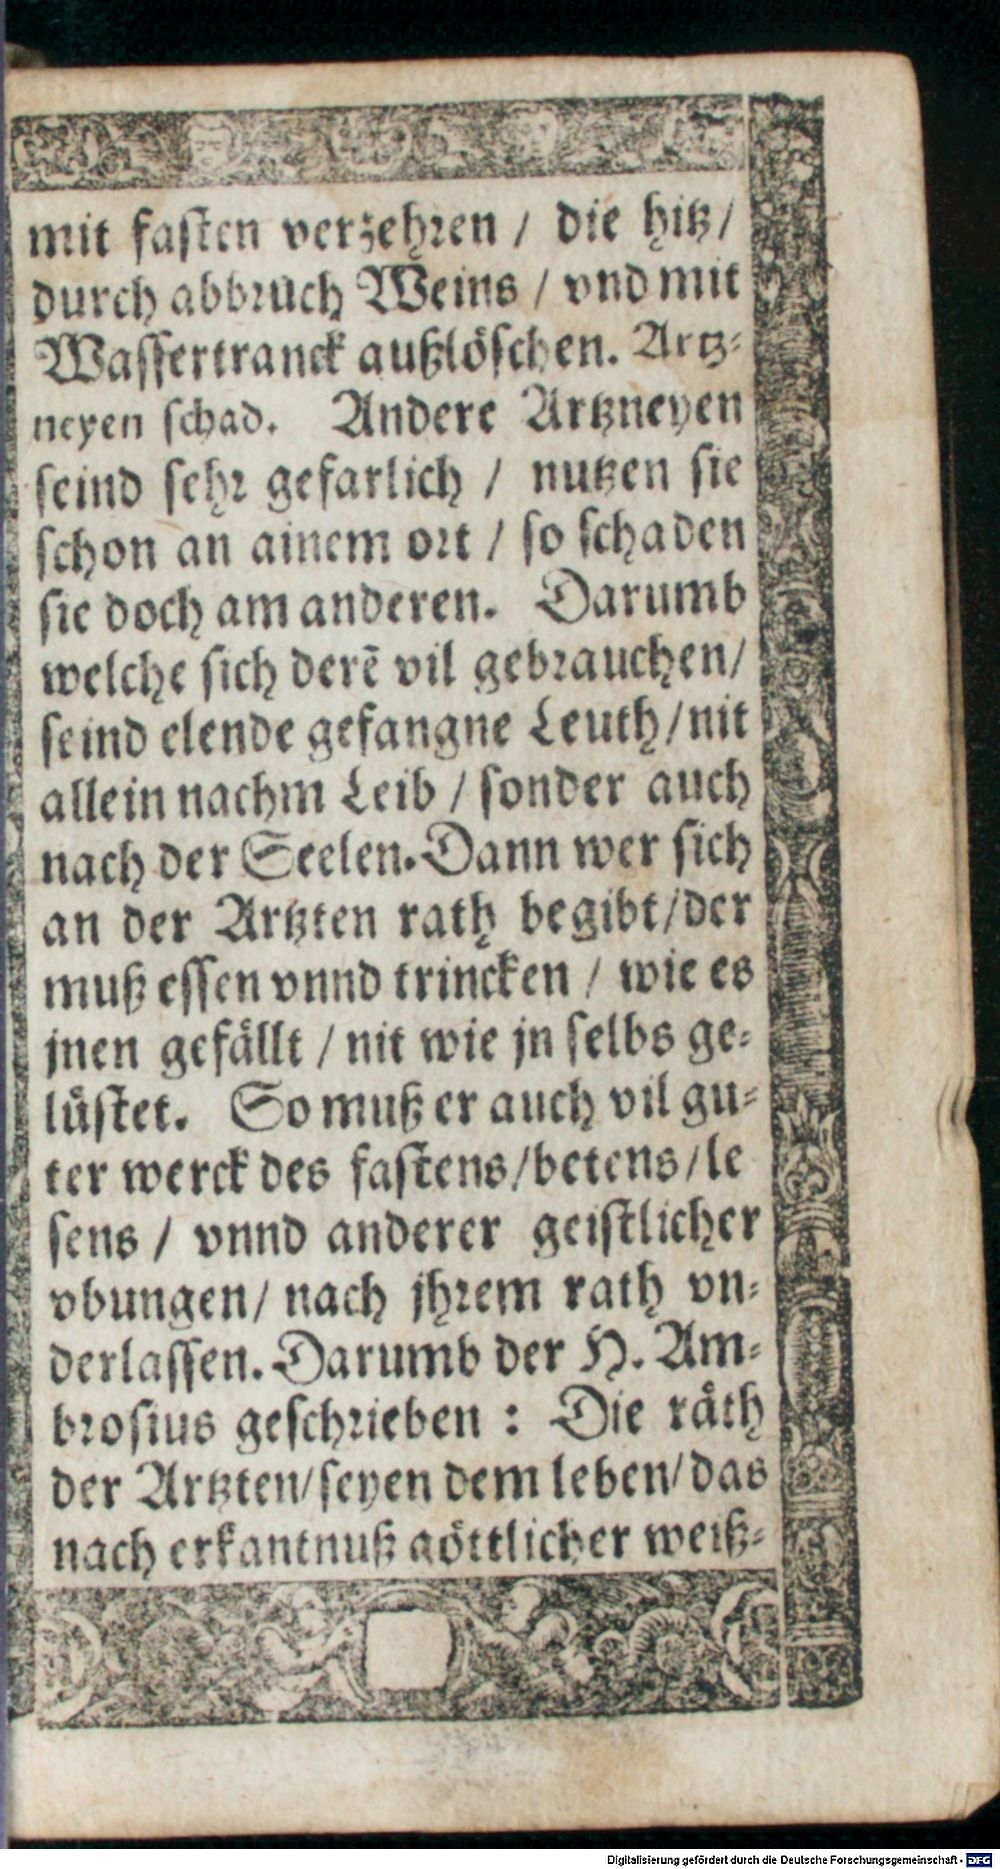 mit fasten verzehren / die hitz /
durch abbruch Weins / vnd mit
Wassertranck außlöschen. Artz-
neyen schad. Andere Artzneyen
seind sehr gefarlich / nutzen sie
schon an ainem ort / so schaden
sie doch am anderen. Darumb
welche sich derẽ vil gebrauchen /
seind elende gefangne Leuth / nit
allein nachm Leib / sonder auch
nach der Seelen. Dann wer sich
an der Artzten rath begibt / der
muß essen vnnd trincken / wie es
jnen gefällt / nit wie jn selbs ge-
lüstet. So muß er auch vil gu-
ter werck des fastens / betens / le
sens / vnnd anderer geistlicher
vbungen / nach jhrem rath vn-
derlassen. Darumb der H. Am-
brosius geschrieben : Die räth
der Artzten / seyen dem leben / das
nach erkantnuß göttlicher weiß-
Digitalisierung gefördert durch die Deutsche Forschungsgemeinschaft - DFG